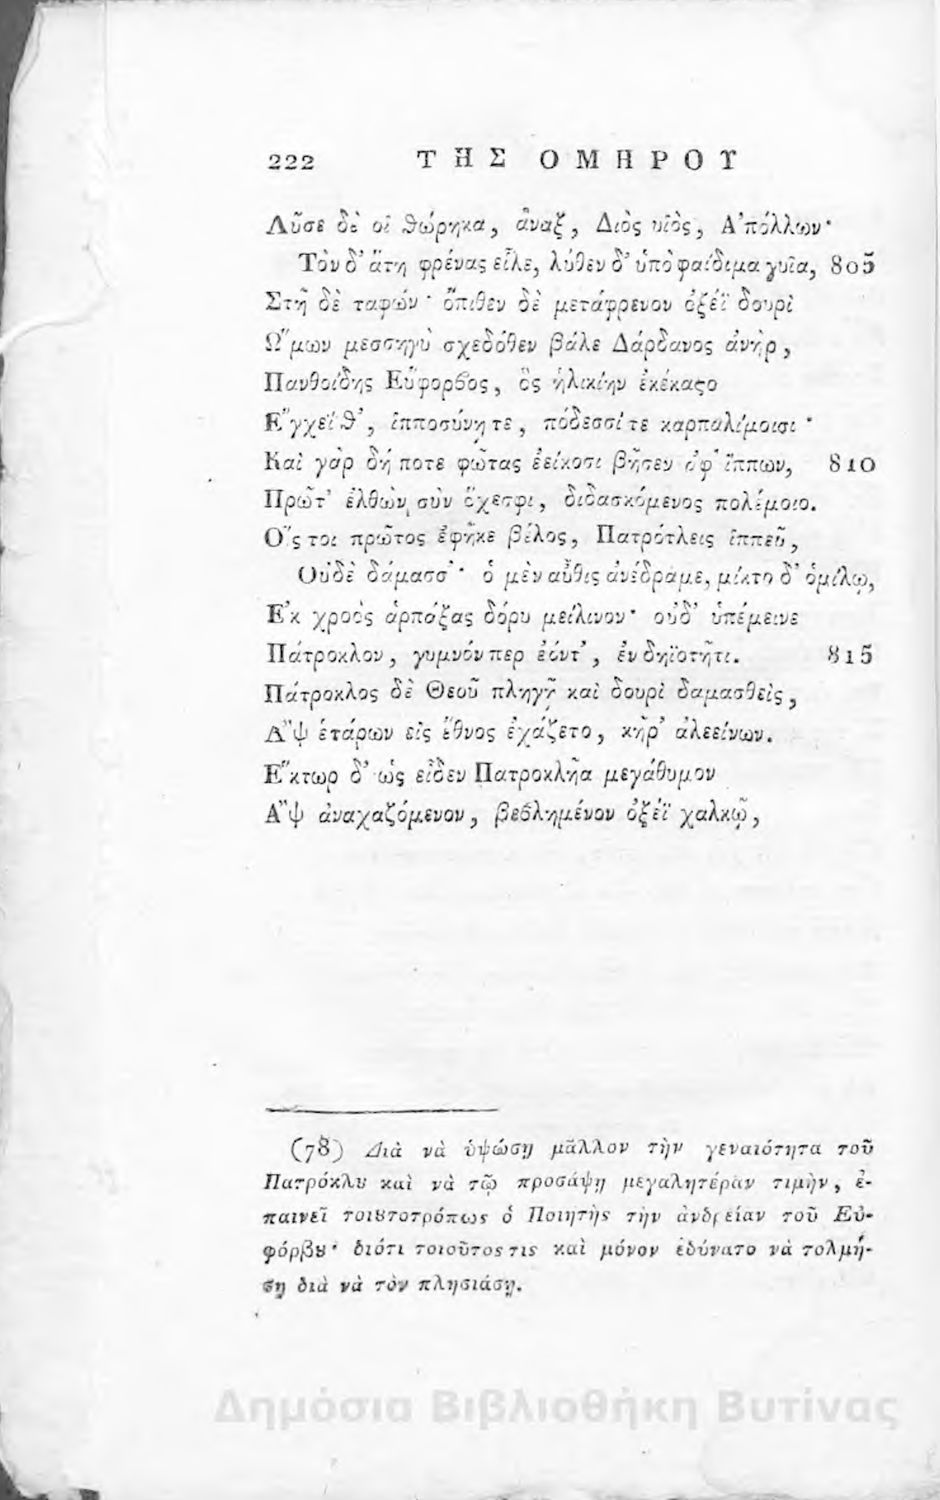 222 ΤΗΣ ΟΜΗΡΟΥ
Λῦσε δέ οἱ θώρηκα, ἄναξ, Διὸς υἱὸς, Ἀπόλλων·
Τὸν δ' ἄτη φρένας εἷλε, λύθεν δ' ὑπὸ φαίδιμα γυῖα, 805
Στῆ δὲ ταφών· ὄπιθεν δὲ μετάφρενον ὀξέϊ δουρὶ
Ὤμων μεσσηγὺ σχεδόθεν βάλε Δάρδανος ἀνὴρ,
Πανθοίδης Εὔφορβος, ὃς ἡλικίην ἐκέκαϛο
Ἔγχεΐ θ', ἱπποσύνῃ τε, πόδεσσί τε καρπαλίμοισι·
Καὶ γὰρ δή ποτε φῶτας ἐείκοσι βῆσεν ἀφ' ἵππων, 810
Πρῶτ' ἐλθὼν σὺν ὄχεσφι, διδασκόμενος πολέμοιο.
Ὅς τοι πρῶτος ἐφῆκε βέλος, Πατρότλεις ἱππεῦ,
Οὐδὲ δάμασσ'· ὁ μὲν αὖθις ἀνέδραμε, μίκτο δ' ὁμίλῳ,
Ἐκ χροὸς ἁρπάξας δόρυ μείλινον· οὐδ' ὑπέμεινε
Πάτροκλον, γυμνόν περ ἐόντ', ἐν δηϊοτῆτι. 815
Πάτροκλος δὲ Θεοῦ πληγῇ καὶ δουρὶ δαμασθεὶς,
Ἂψ ἑτάρων εἰς ἔθνος ἐχάζετο, κῆρ' ἀλεείνων.
Ἕκτωρ δ' ὡς εἶδεν Πατροκλῆα μεγάθυμον
Ἂψ ἀναχαζόμενον, βεβλημένον ὀξέϊ χαλκῷ,
(78) Διὰ νὰ ὑψώσῃ μᾶλλον τὴν γεναιότητα τοῦ
Πατρόκλȣ καὶ νὰ τῷ προσάψῃ μεγαλητέραν τιμὴν, ἐ-
παινεῖ τοιȣτοτρόπως ὁ Ποιητὴς τὴν ἀνδρείαν τοῦ Εὐ-
φόρβȣ· διότι τοιοῦτος τις καὶ μόνον ἐδύνατο νὰ τολμή-
σῃ διὰ νὰ τὸν πλησιάσῃ.
Δημόσια Βιβλιοθήκη Βυτίνας